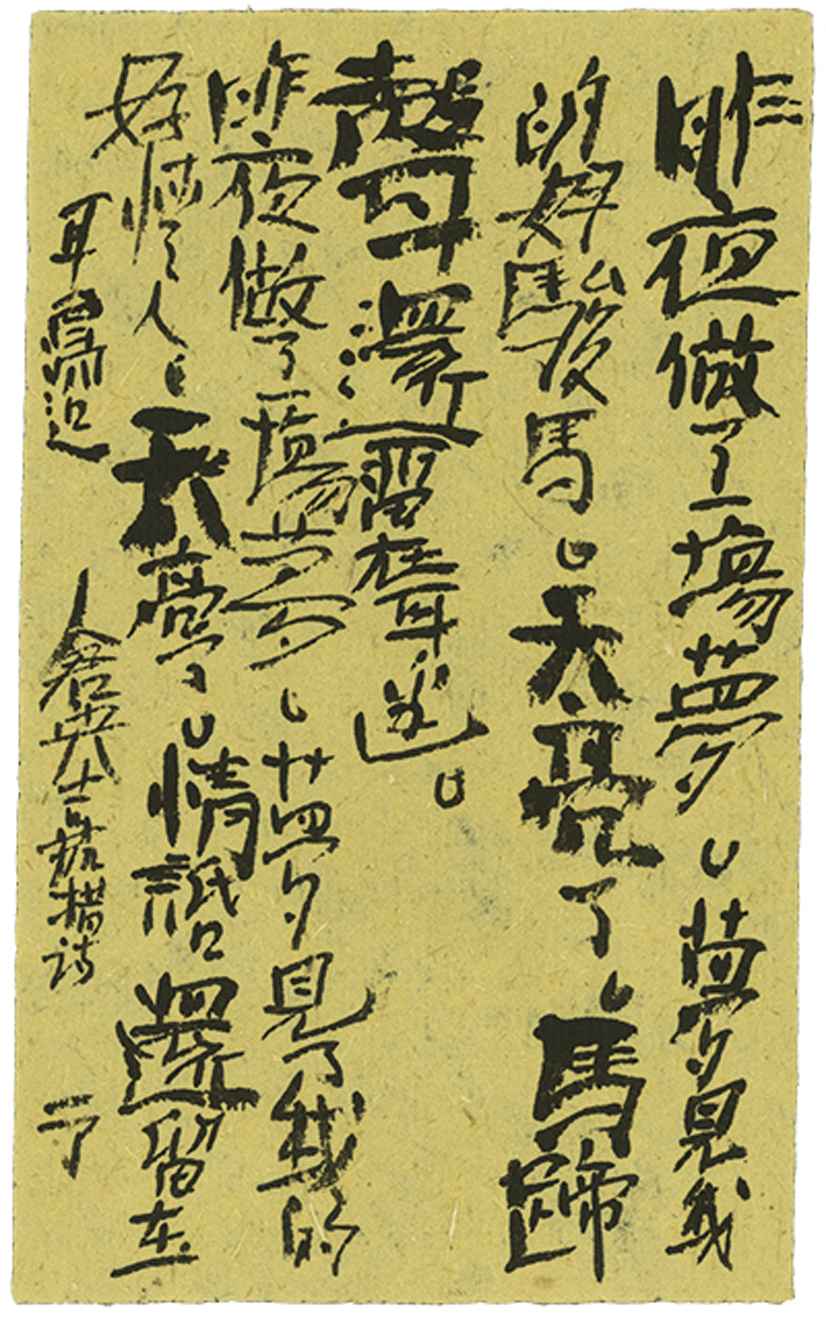 昨夜做了一場夢，夢見我
的好駿馬，天亮了，馬蹄
聲耳還留在耳邊，
昨夜做了一場夢，夢見了我的
好情人，天亮了，情話還留在
耳窩邊